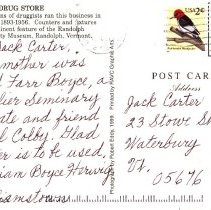 DRUG STORE
ns of druggists ran this business in
1893-1956. Counters and fixtures
inent feature of the Randolph
ty Museum, Randolph, Vermont.
Jack Carter,
mother was
Farr Boyce, a
lier Seminary
ate and friend
Colby. Glad
er is to be used.
iam Boyce Herwig
iamstown
USA 2c
POST CAR
Address
Jack Carter
23 Stowe S
Waterbury
Vt.
05676